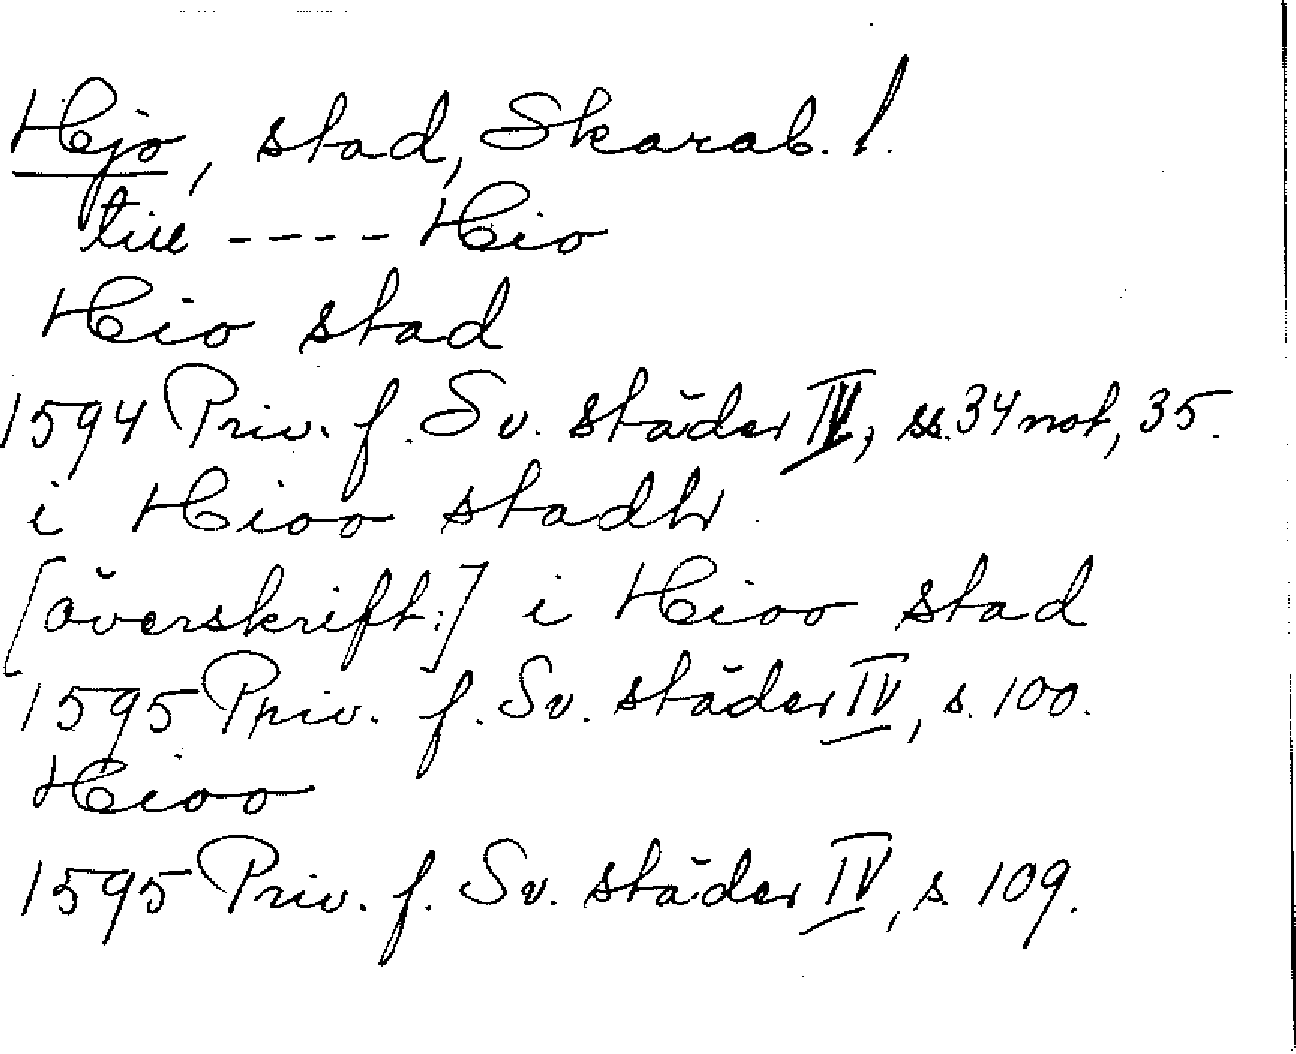 Hjo, stad, Skarab. l.
till ---- Hio
Hio stad
1594 Priv. f. Sv. städer IV, ss. 34 not, 35.
i Hioo stadh
[överskrift:] i Hioo stad
1595 Priv. f. Sv. städer IV, s. 100.
Hioo
1595 Priv. f. Sv. städer IV, s. 109.